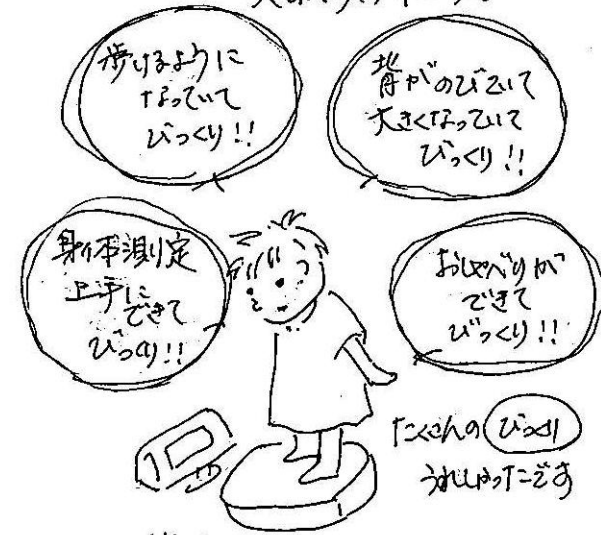 歩けるように
なっていて
びっくり!!
背がのびていて
大きくなっていて
びっくり!!
身体測定
上手に
できて
びっくり!!
おしゃべりが
できて
びっくり!!
たくさんの びっくり
うれしかったです